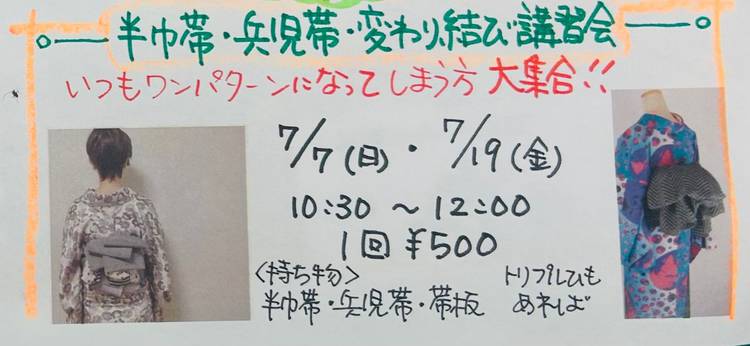 半巾帯・兵児帯・変わり結び講習会
いつもワンパターンになってしまう方 大集合!!
7/7(日)・7/19(金)
10:30 ～ 12:00
1回 ¥500
〈持ち物〉
半巾帯・兵児帯・帯板
トリプルひも
あれば